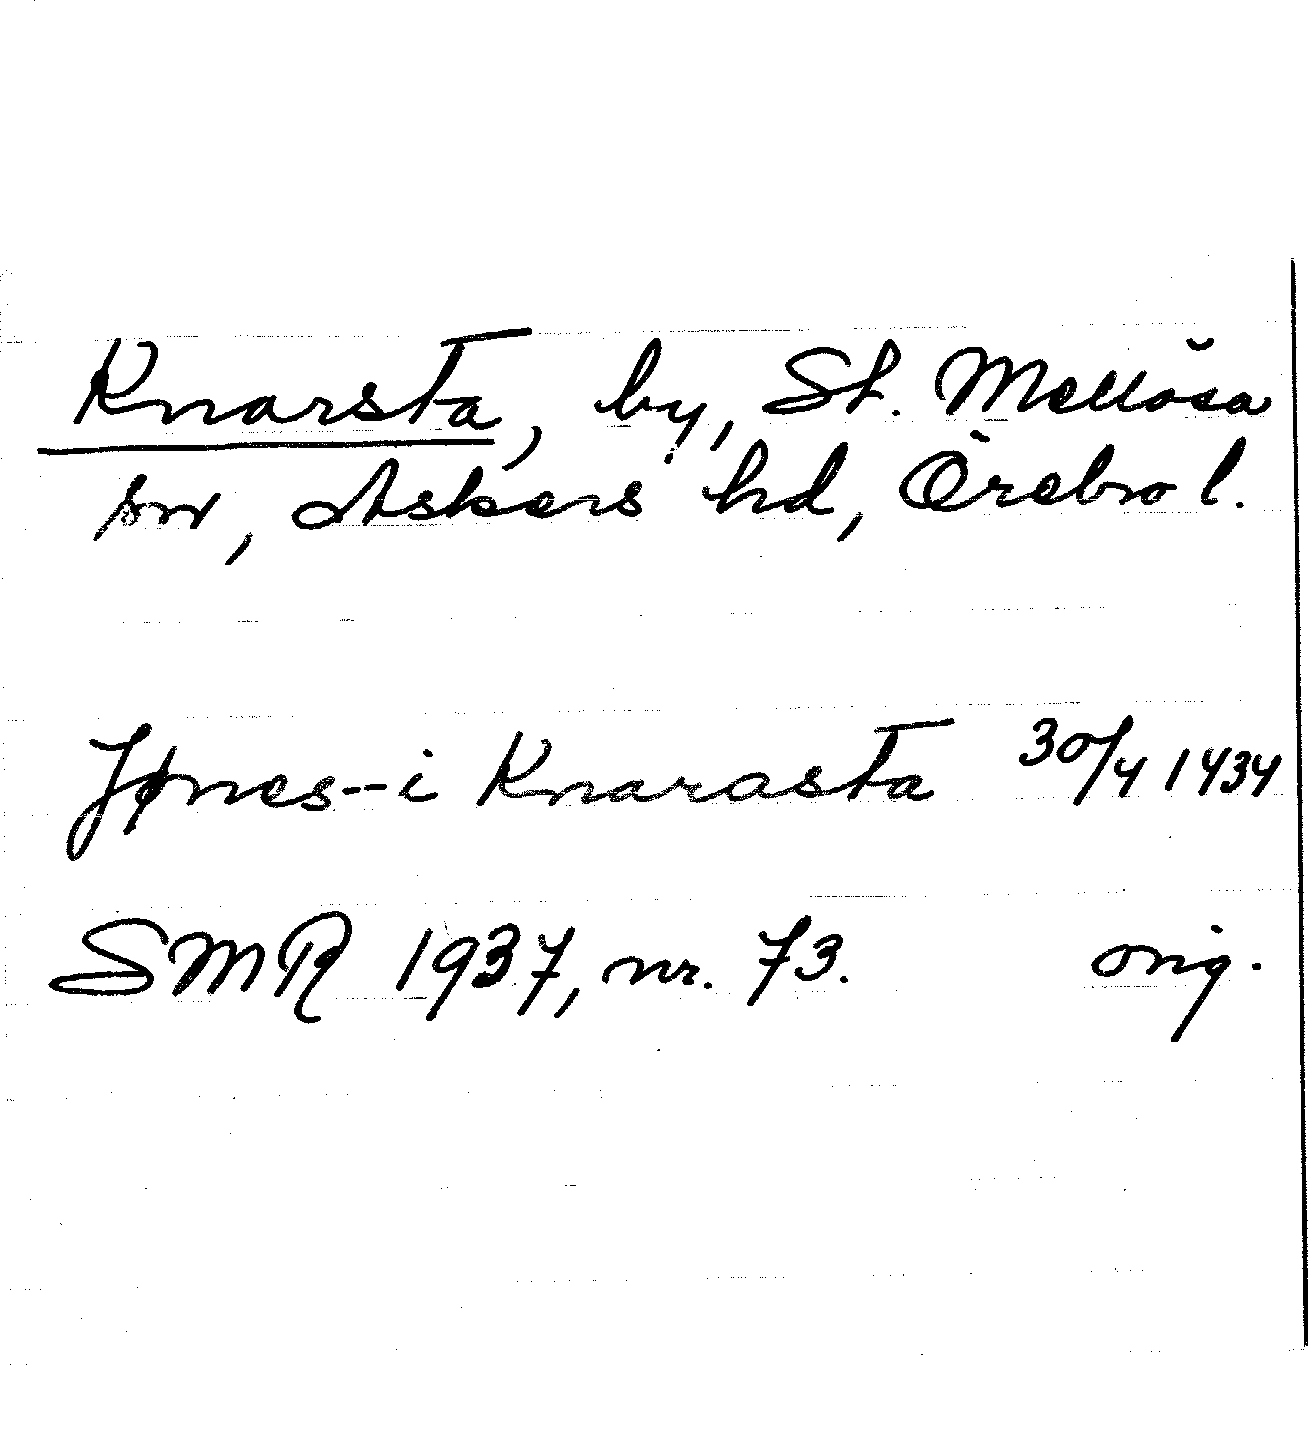 Knarsta, by, St. Mellösa
sn, Askers hd, Örebro l.
Jønes--i Knarasta 30/4 1434
SMR 1937, nr. 73. orig.